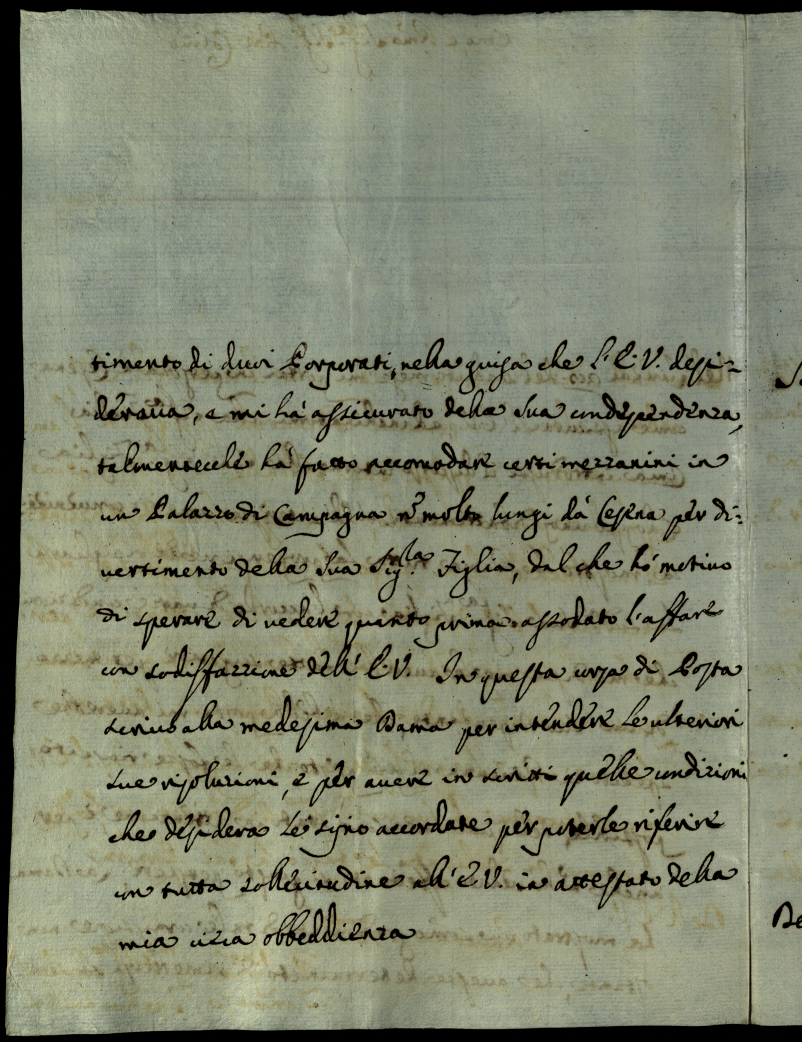 timento di duoi Porporati, nella guisa che l'E.V. desi=
derava, e mi há assicurato della sua condependenza,
talmenteche há fatto accomodare certi mezzanini in
un Palazzo di Campagna nõ molto lungi dá Cesena per di=
uertimento della sua Sig.la Figlia, dal che hó motiuo
di sperare di uedere quanto prima assodato l'affare
con sodisfazzione dell' E.V. In questa corsa di Posta
scriuo alla medesima Dama per intendere le ulteriori
sue risoluzioni, e per auere in scritti quelle condizioni
che desidera le sijno accordate per poterle riferire
con tutta sollecitudine all' E.V. in attestato della
mia uera obbeddienza